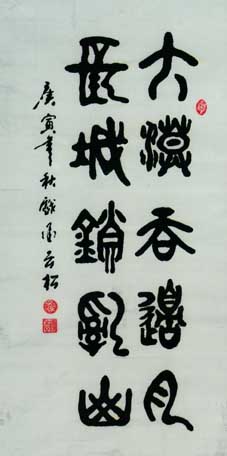 大漠吞邊月
長城鎖亂山
庚寅年秋戲墨云松